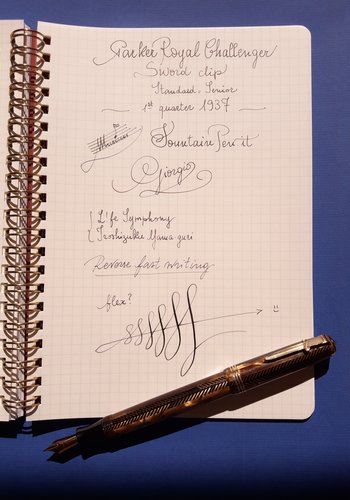 Parker Royal Challenger
Sword clip
Standard - Senior
1st quarter 1937
FountainPen it
Giorgio
L!fe Symphony
Iroshizuku Yama-guri
Reverse fast writing
flex?